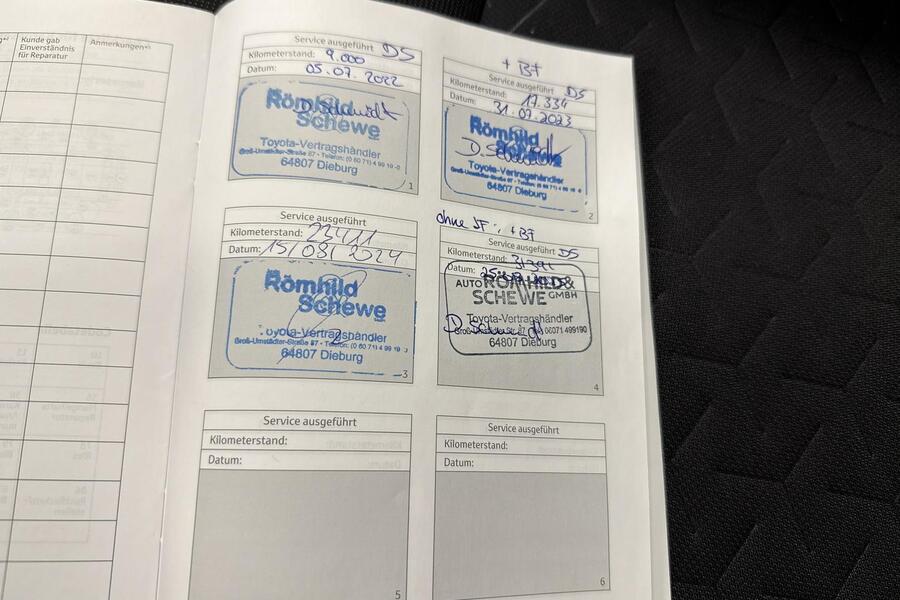 Kunde gab
Einverständnis
für Reparatur
Anmerkungen
Service ausgeführt DS
Kilometerstand: 9.000
Datum: 05.07.2022
Römhild
Schewe
Toyota-Vertragshändler
Groß-Umstädter-Straße 87 - Telefon: (0 60 71) 4 99 19 -0
64807 Dieburg
1
+ BF
Service ausgeführt DS
Kilometerstand: 17.334
Datum: 31.07.2023
Römhild
Schewe
Toyota-Vertragshändler
Groß-Umstädter-Straße 87 - Telefon: (0 60 71) 4 99 19 -0
64807 Dieburg
2
Service ausgeführt
Kilometerstand: 23411
Datum: 15/08/2024
Römhild
Schewe
Toyota-Vertragshändler
Groß-Umstädter-Straße 87 - Telefon: (0 60 71) 4 99 19 -0
64807 Dieburg
3
ohne + BF
Service ausgeführt DS
Kilometerstand:
Datum:
AUTO RÖMHILD &
SCHEWE GMBH
Toyota-Vertragshändler
06071 499190
64807 Dieburg
4
Service ausgeführt
Kilometerstand:
Datum:
5
Service ausgeführt
Kilometerstand:
Datum:
6